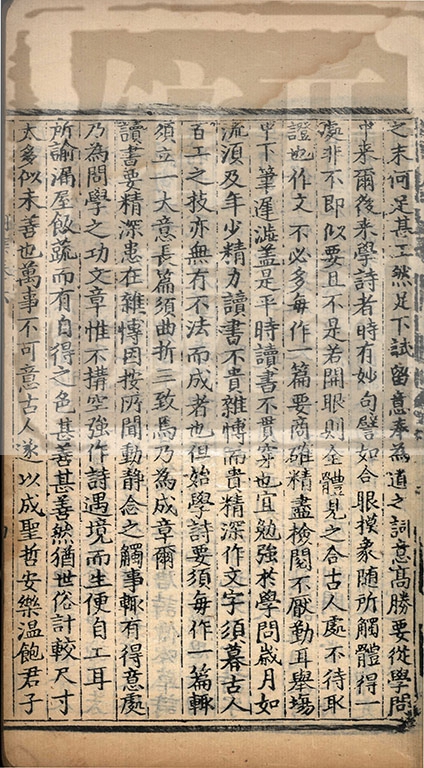 之末何足甚工然足下試留意奉為道之詞意髙勝要從學問
中来爾後来學詩者時有妙句譬如合眼摸象随所觸體得一
處非不即似要且不是若開眼則全體見之合古人處不待取
證也作文不必多每作一篇要商確精盡檢閱不厭勤耳舉塲
中下筆遲澁盖是平時讀書不貫穿也宜勉強於學問歲月如
流須及年少精力讀書不貴雜愽而貴精深作文字須摹古人
百工之技亦無有不法而成者也但始學詩要須每作一篇輙
須立一大意長篇須曲折三致馬乃為成章爾
讀書要精深患在雜愽因按所聞動静念之觸事輙有得意處
乃為問學之功文章惟不搆空強作詩遇境而生便自工耳
所諭漏屋飯蔬而有自得之色甚善甚善然猶世俗計較尺寸
太多似未善也萬事不可意古人遂以成聖哲安樂温飽君子